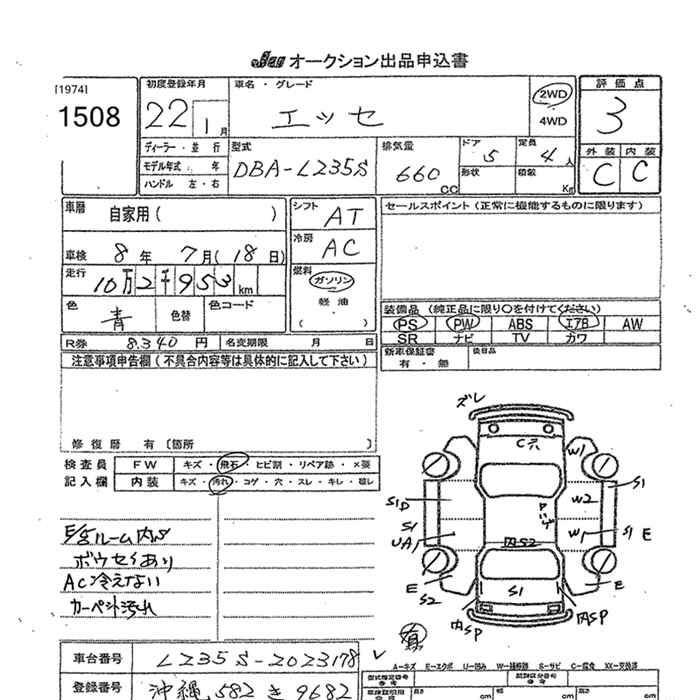 JU オークション出品申込書
[1974]
1508
初度登録年月
22 1月
車名・グレード
エッセ
2WD
4WD
評価点
3
外装 内装
C C
ディーラー・並行
モデル年式 年
ハンドル 左・右
型式
DBA-L235S
排気量
660 cc
ドア 5
形状
定員 4人
積載 Kg
車歴 自家用( )
車検 8年 7月(18日)
走行 10万2千953km
色 青 色替 色コード
シフト AT
冷房 AC
燃料 ガソリン
軽油
( )
セールスポイント(正常に機能するものに限ります)
装備品(純正品に限り○を付けてください)
PS PW ABS エアB AW
SR ナビ TV カワ
新車保証書 有・無 後日品
R券 8,340円 名変期限 月 日
注意事項申告欄(不具合内容等は具体的に記入して下さい)
修復歴 有〔箇所 〕
検査員 FW キズ・飛石・ヒビ割・リペア跡・×要
記入欄 内装 キズ・汚れ・コゲ・穴・スレ・キレ・破レ
ルーム内S
AC冷えない
カーペット汚れ
ズレ
C穴
W1
S1
S1D
W2
S1
UA1
W1
S1 E
内S2
E
S2
S1
E
内SP
内SP
車台番号 L235S-2023178
登録番号 沖縄 582 き 9682
A-キズ E-エクボ U-凹み W-補修跡 S-サビ C-腐食 XX-交換済